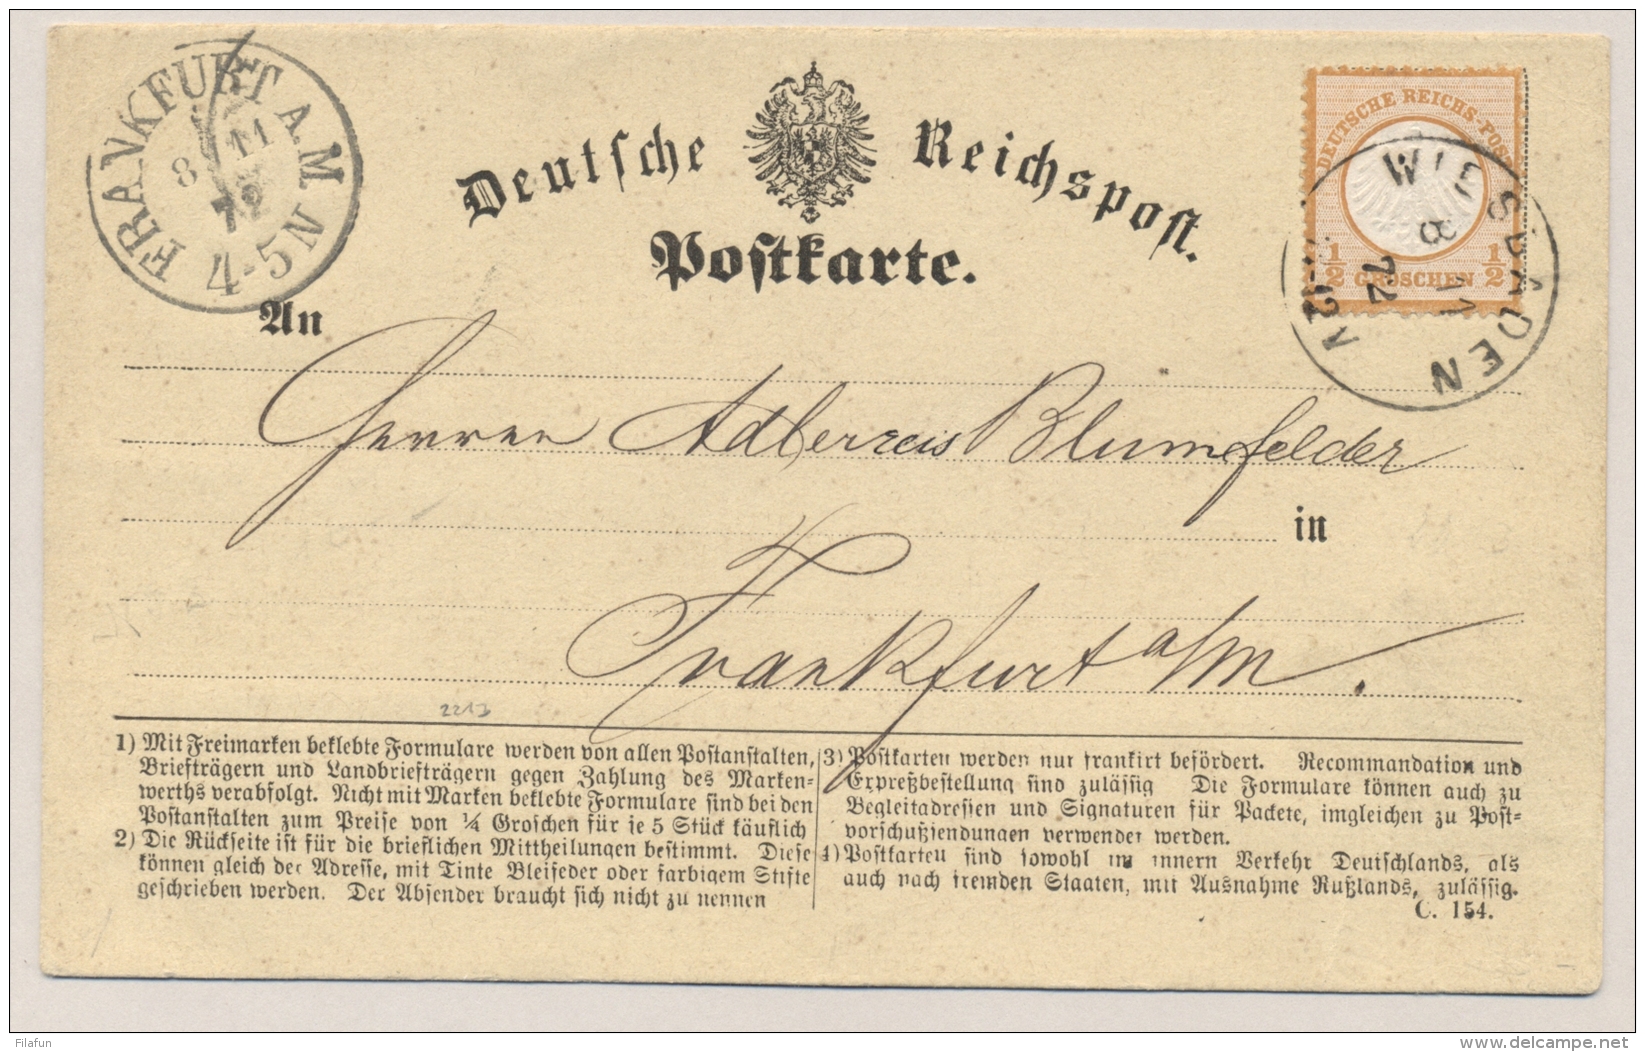 FRANKFURT A.M.
8 11
72
4-5N
Deutsche Reichspost.
Postkarte.
DEUTSCHE REICHS-POST
1/2 GROSCHEN 1/2
WIESBADEN
8 11
72
An
Herren Adler Blumefelder
in
Frankfurt a/m.
2213
1) Mit Freimarken beklebte Formulare werden von allen Postanstalten,
Briefträgern und Landbriefträgern gegen Zahlung des Marken-
werths verabfolgt. Nicht mit Marken beklebte Formulare sind bei den
Postanstalten zum Preise von ¼ Groschen für je 5 Stück käuflich
2) Die Rückseite ist für die brieflichen Mittheilungen bestimmt. Diese
können gleich der Adresse, mit Tinte Bleifeder oder farbigem Stifte
geschrieben werden. Der Absender braucht sich nicht zu nennen
3) Postkarten werden nur frankirt befördert. Recommandation und
Expreßbestellung sind zulässig Die Formulare können auch zu
Begleitadressen und Signaturen für Packete, imgleichen zu Post-
vorschußsendungen verwendet werden.
4) Postkarten sind sowohl im innern Verkehr Deutschlands, als
auch nach fremden Staaten, mit Ausnahme Rußlands, zulässig.
C. 154.
Filafun
www.delcampe.net